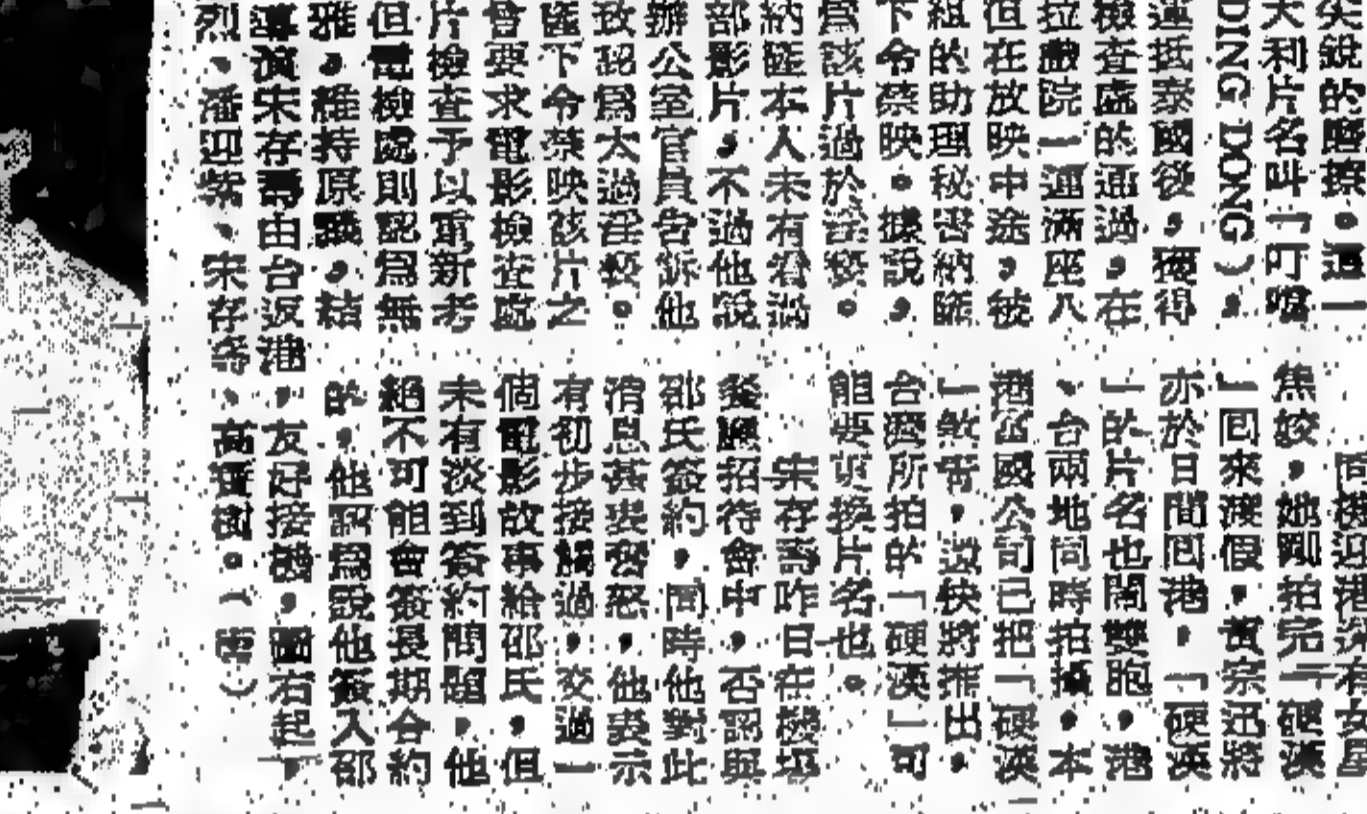 尖銳的
大利片名叫「叮噹
DING DONG)，
運抵泰國後，獲得
檢查處的通過，在
拉戲院一連滿座八
但在放映中途，被
組的助理秘書納
下令禁映。據說，
為該片過於淫褻。
納匯本人未有看過
部影片，不過他說
辦公室官員告訴他
致認為太過淫褻。
匯下令禁映該片之
會要求電影檢查處
片檢查予以重新考
但電檢處則認為無
雅，維持原議。結
導演宋存壽由台返港
烈、潘迎紫、宋存壽
同機返港還有女星
焦姣，她剛拍完「硬漢
」回來渡假，黃宗迅將
亦於日間回港，「硬漢
」的片名也鬧雙胞，港
、台兩地同時拍攝，本
港富國公司已把「硬漢
」煞青，並快將推出，
台灣所拍的「硬漢」可
能要更換片名也。
宋存壽昨日在機場
餐廳招待會中，否認與
邵氏簽約，同時他對此
消息甚表忿怒，他表示
有初步接觸過，交過一
個電影故事給邵氏，但
未有談到簽約問題，他
絕不可能會簽長期合約
的，他認為說他簽入邵
，友好接機，圖右起
、高寶樹。(南)